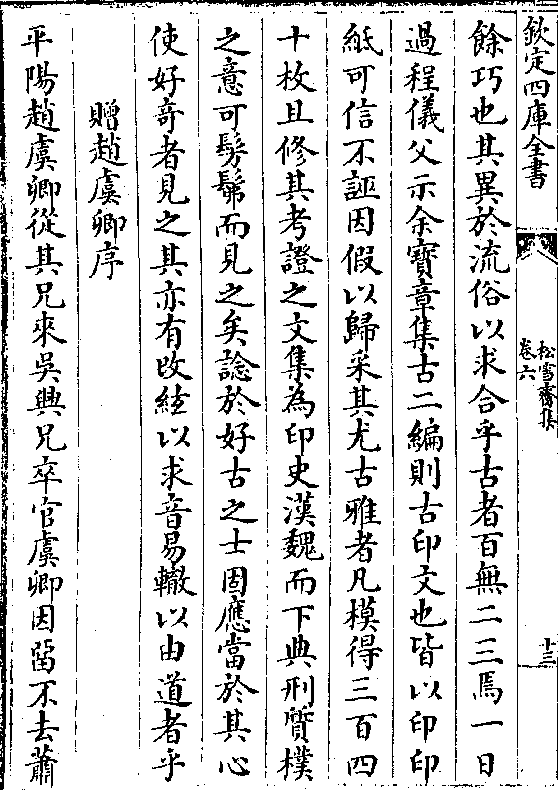 欽定四庫全書
松雪齋集
卷六
十三
餘巧也其異於流俗以求合乎古者百無二三焉一日
過程儀父示余寶章集古二編則古印文也皆以印印
紙可信不誣因假以歸采其尤古雅者凡模得三百四
十枚且修其考證之文集為印史漢魏而下典刑質樸
之意可髣髴而見之矣諗於好古之士固應當於其心
使好奇者見之其亦有改絃以求音易轍以由道者乎
贈趙虞卿序
平陽趙虞卿從其兄來吳興兄卒官虞卿因留不去蕭